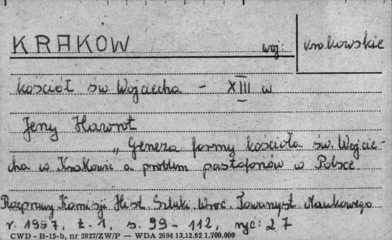 KRAKÓW woj: krakowskie
kościół św Wojciecha - XIII w
Jerzy Hawrot
„Geneza formy kościoła św. Wojcie-
cha w Krakowie a problem pastoforiów w Polsce
Rozprawy Komisji Hist. Sztuki Wroc. Towarzyst. Naukowego
r. 1957, t. 1, s. 99 - 112, ryc: 27
CWD - B-15-b, nr 2827/ZW/P — WDA 2694 13.12.62 1.700.000